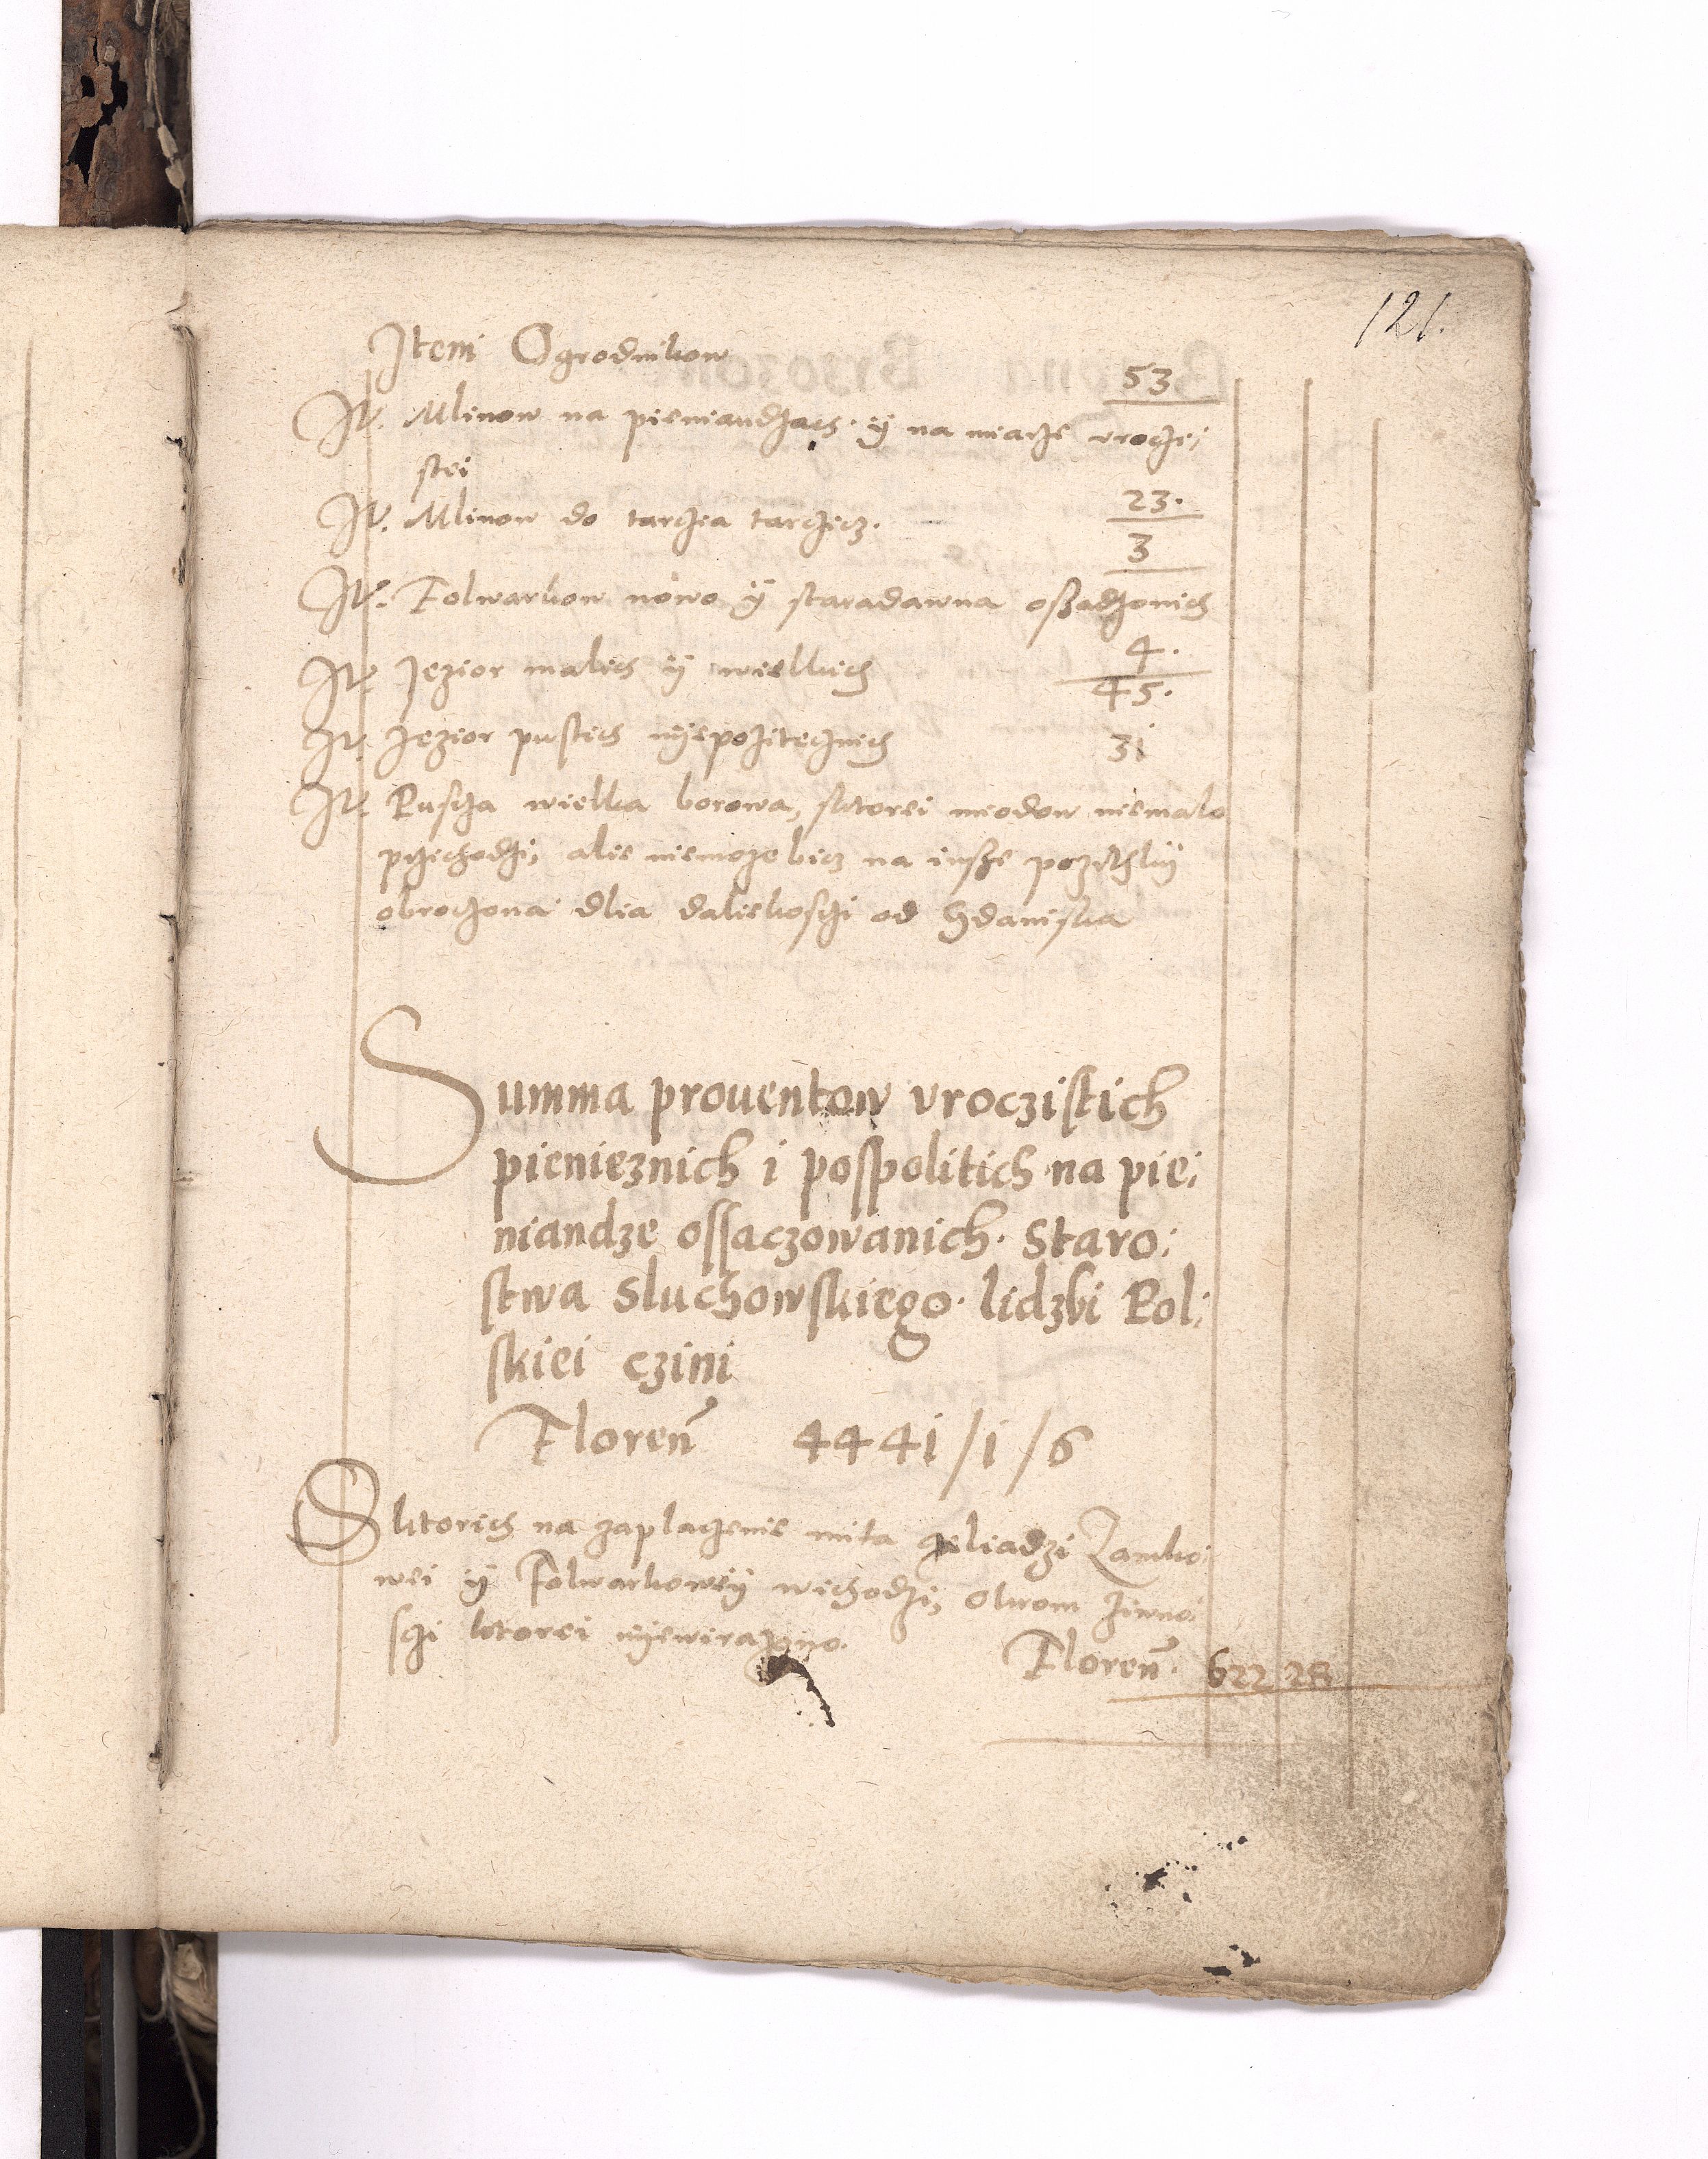 121.
Item Ogrodnikow
53
It. Mlinow na pieniandzach. ÿ na miarze vroczi;
stei
23.
It. Mlinow do tarczia tarczicz.
3
It. Folwarkow nowo ÿ staradawna oszadzonich
4.
It. Jezior malich ÿ wielkich 45.
It. Jezior pustich nÿepozitecznich 3i
It. Puscza wielka borowa, sktorei miodow niemalo
pczichodzi, alie niemoze bicz na insze pozithkÿ
obroczona dlia daliekosczi od Gdaniska
Summa prouentow vroczistich
pienieznich i pospolitich na pie;
niandze ossaczowanich. Staro;
stwa Sluchowskiego. lidzbi Pol;
skiei czini
Floren 444i/i/6
S ktorich na zaplaczenie mita czeliadzi Zamko;
wei ÿ Folwarkowey wichodzi, Okrom ziwno;
sczi ktorei nÿewirazono.
Floren. 622 28